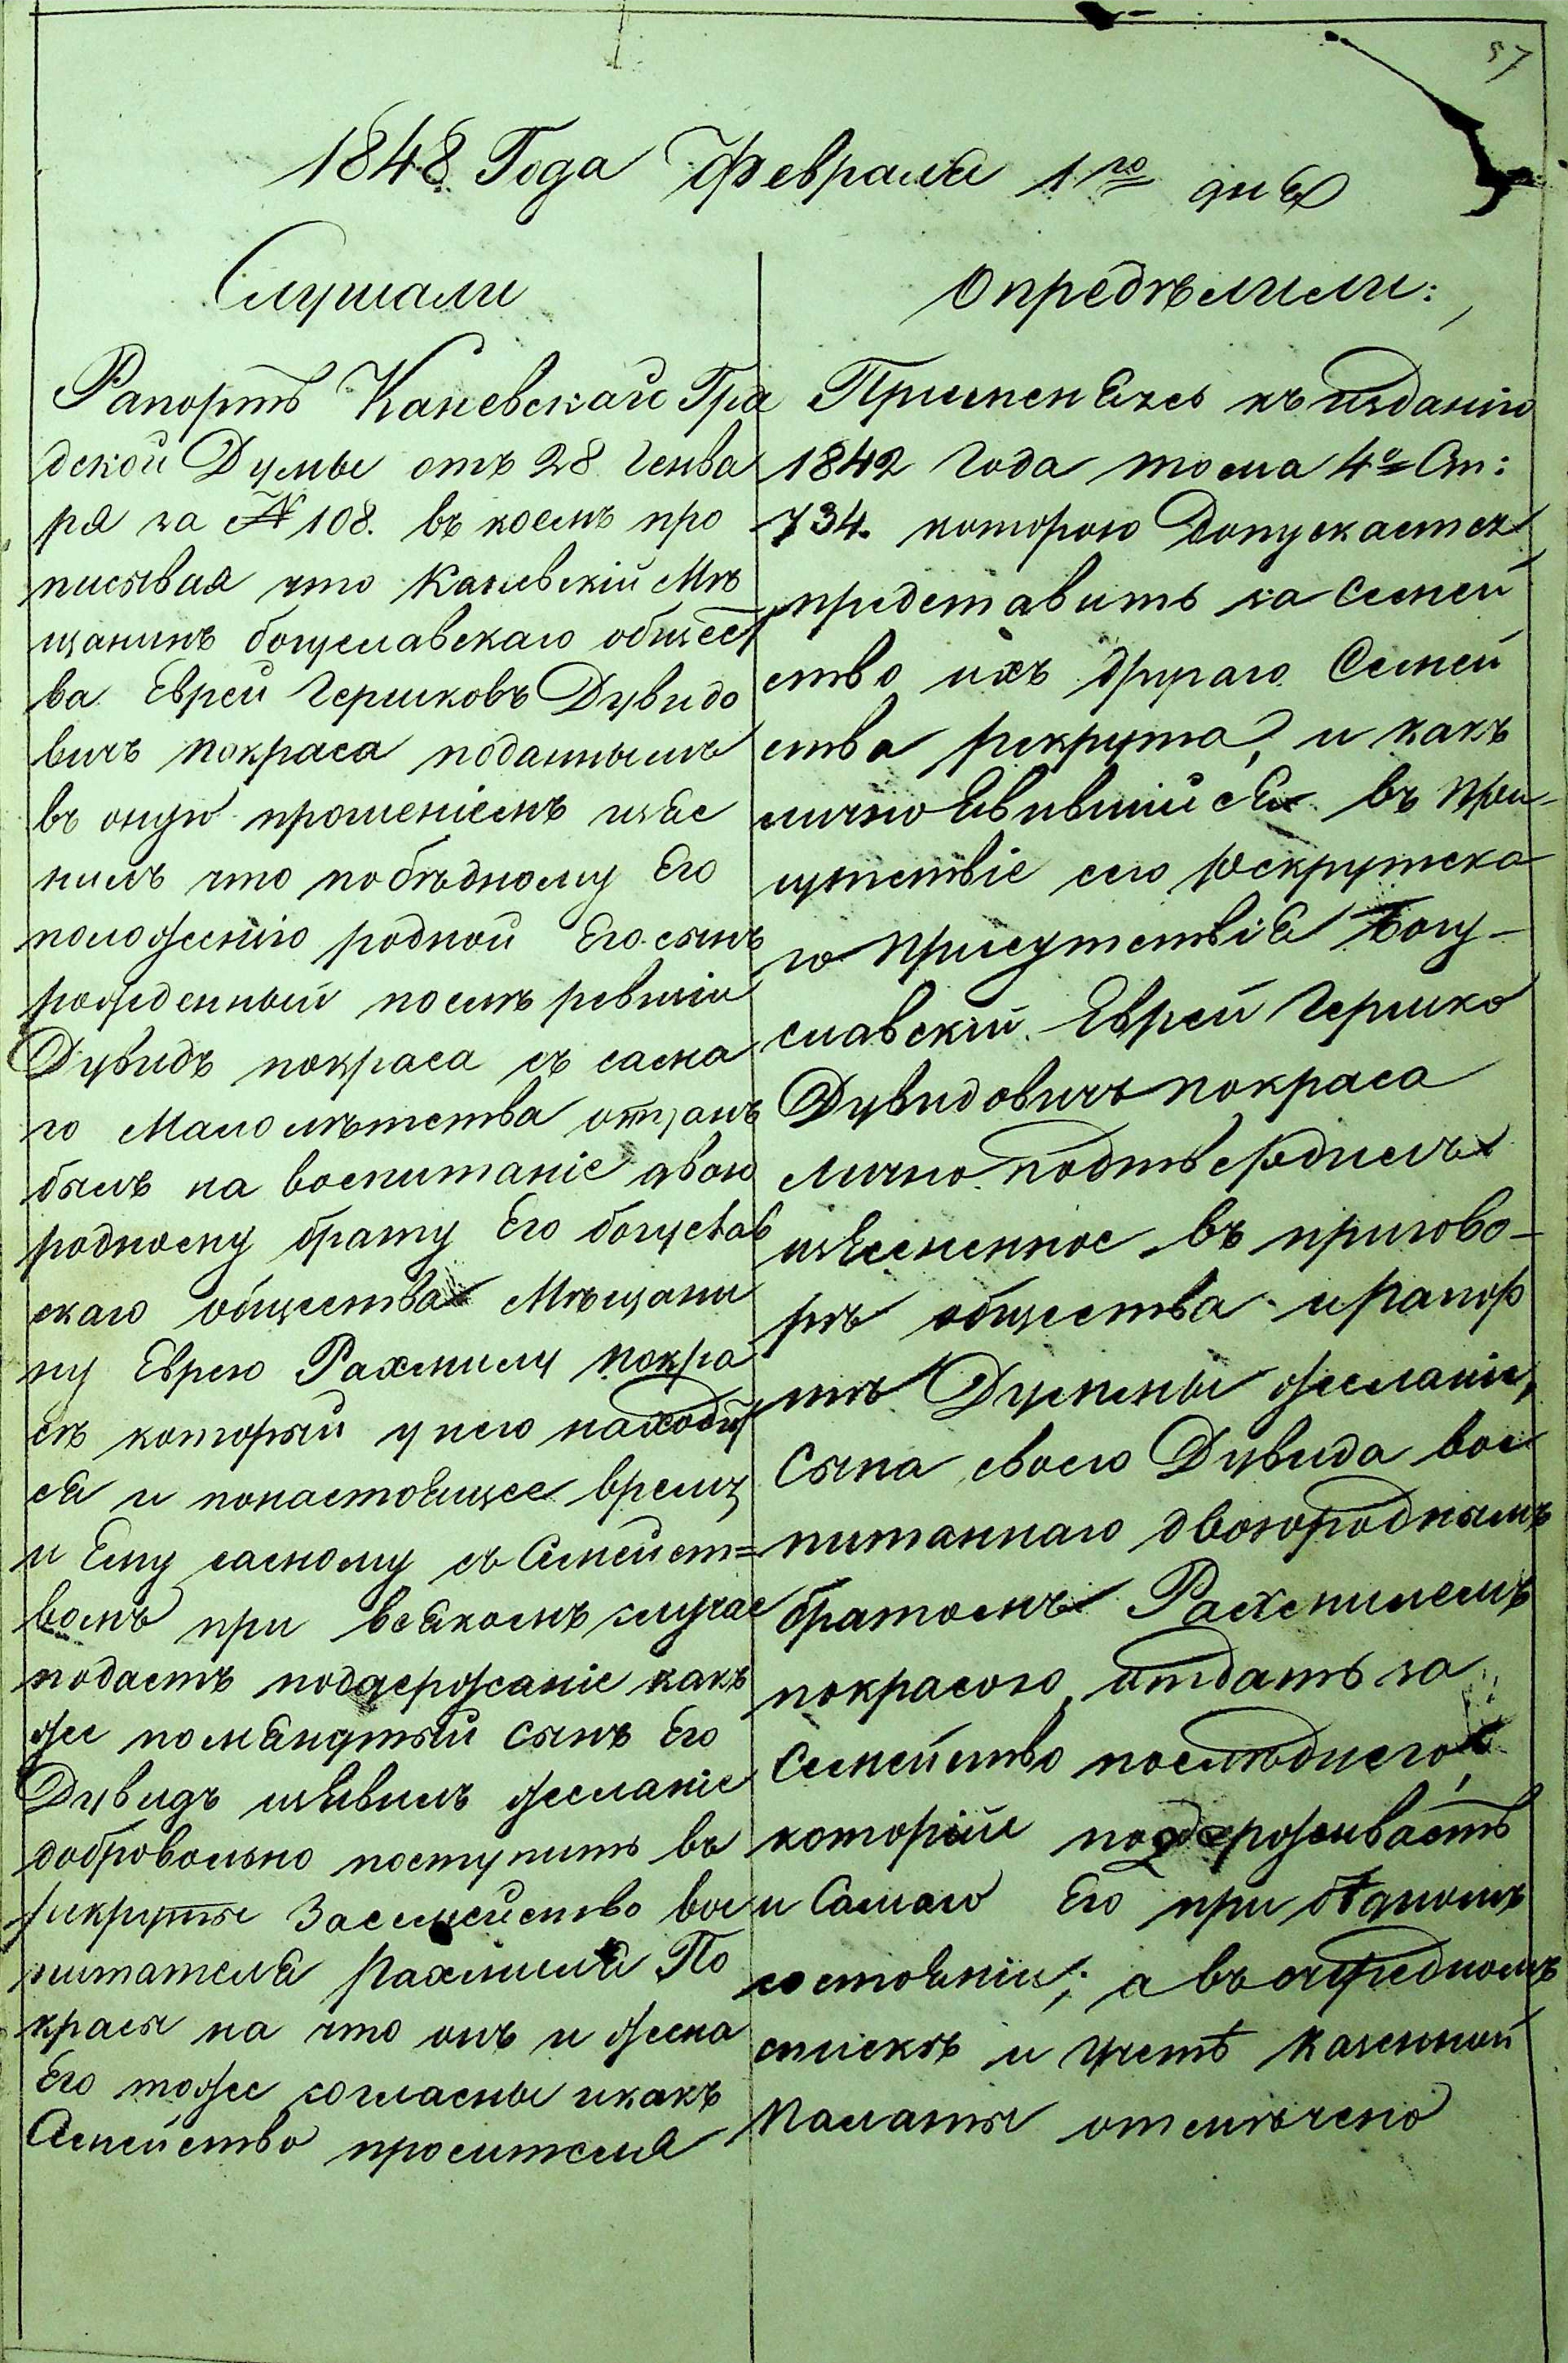 57
1848 Года Февраля 1го дня
Слушали
Рапортъ Каневскаго Гра
дской Думы отъ 28 Генва
ря за № 108. въ коемъ про
писывая что Каневскій Мѣ
щанинъ богуславскаго общест
ва Еврей Гершковъ Дувидо
вичъ покраса поданнымъ
въ оную прошеніемъ изъяс
нилъ что по бѣдному Его
положенію родной Его сынъ
рожденный послѣ ревизіи
Дувидъ покраса съ сама
го Малолѣтства отданъ
былъ на воспитаніе двою
родному брату Его богуслав
скаго общества Мѣщани
ну Еврею Рахмилу покра
сѣ который у него находит
ся и понастоящее время
и Ему самому съ Семейст=
вомъ при всякомъ случае
подаетъ поддержаніе какъ
же помянутый сынъ Его
Дувидъ изъявилъ желаніе
добровольно поступить въ
рикруты Засемейство вос
питателя Рахмиля По
красы на что онъ и жена
Его тоже согласны икакъ
Семейство просителя
Опредѣлили:
Применяясь къ изданію
1842 года тома 4го Ст:
734. которою допускается
представить за семей
ство ихъ другаго Семей
ства рекрута, и какъ
лично явившийся въ при-
сутствіе сего рекрутска
го присутствія Богу-
славскій Еврей Гершко
Дувидовичъ покраса
лично подтвердилъ
изъясненное въ пригово-
рѣ общества и рапор
тѣ Думмы желаніе,
Сына своего Дувида вос
питаннаго двоюроднымъ
братомъ Рахмилемъ
покрасою, отдать за
Семейство послѣдняго,
которій поддерживаетъ
и Самаго Его при бѣдномъ
состояніи; а въ очередномъ
спискѣ и учетѣ казенной
Палаты отмѣчено